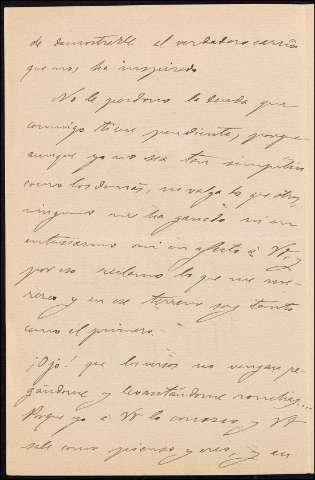 de demostrarle el verdadero cariño
que nos ha inspirado
No le perdono la deuda que
conmigo tiene pendiente, porque
aunque yo no sea tan simpático
como los demás, ni valga lo que otros,
ninguno me ha ganado ni en
entusiasmo ni en afecto á V. y
por eso reclamo lo que me me-
rezco y en ese terreno soy tanto
como el primero.
¡Ojo! que los versos no vengan pe-
gándome y levantándome ronchas....
Porque yo á V. lo conozco, y V.
sabe como pienso y creo, y en